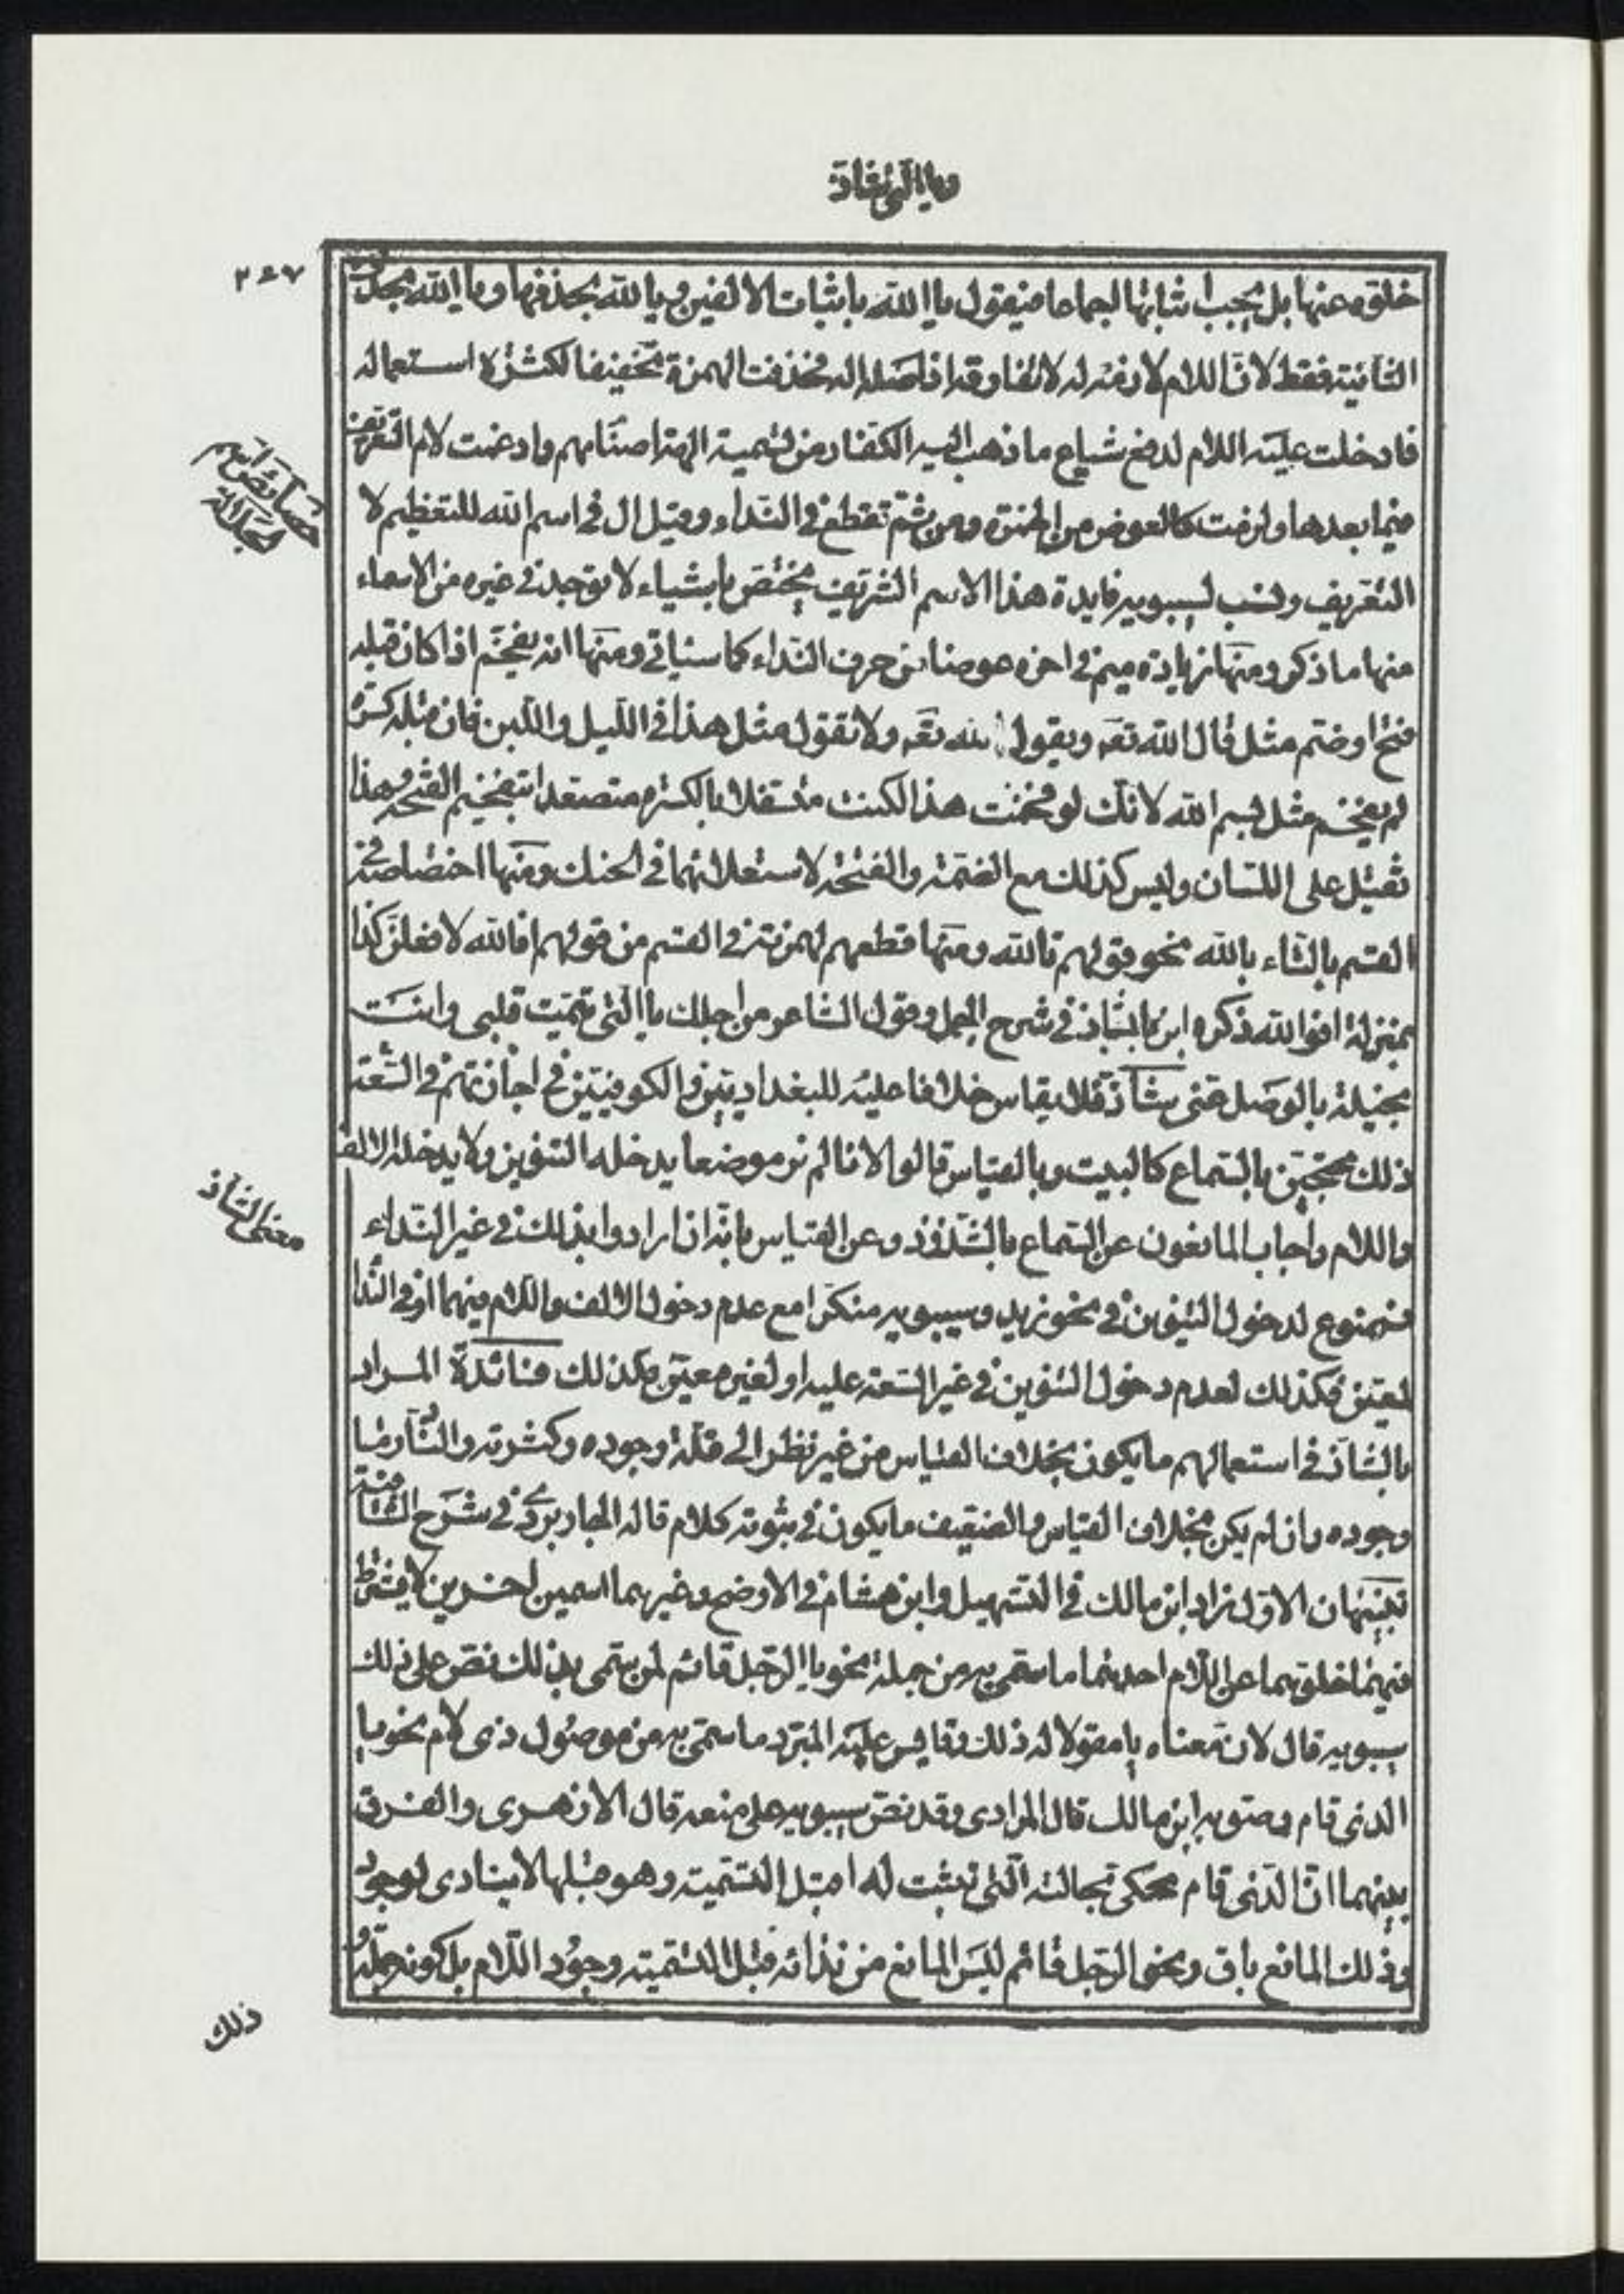 ويا التي شاذ
٢٤٧
خلوه عنها بل يجب اثباتها اجماعا فيقول يا الله باثبات الالفين ويا لله بحذفها ويا الله بحذف
الثانية فقط لان اللام لازمة له لا تفارقه اذ اصله اله فحذفت الهمزة تخفيفا لكثرة استعماله
فادخلت عليه اللام لدفع شياع ما ذهب اليه الكفار من تسمية الهة اصنامهم وادغمت لام التعريف
فيما بعدها ولزمت كالعوض من الهمزة ومن ثم تقطع في النداء وقيل ال في اسم الله للتعظيم لا
خصائص اسم
الجلالة
التعريف ونسب لسيبويه فايدة هذا الاسم الشريف يختص باشياء لا توجد في غيره من الاسماء
منها ما ذكر ومنها زيادة ميم في اخره عوضا من حرف النداء كما سياتي ومنها انه يفخم اذا كان قبله
فتح او ضم مثل قال الله تعه ويقول الله تعه ولا تقول مثل هذا في الليل واللبن فان قبله كسرة
لم يفخم مثل بسم الله لانك لو فخمت هذا لكنت متسفلا بالكسرة متصعدا بتفخيم الفتحة وهذا
ثقيل على اللسان وليس كذلك مع الضمة والفتحة لاستعلائهما في الحنك ومنها اختصاصه في
القسم بالتاء بالله نحو قولهم تالله ومنها قطعهم لهمزته في القسم من قولهم افالله لافعلن كذا
بمنزلة افوالله ذكره ابن بابشاذ في شرح الجمل وقول الشاعر من اجلك يا التي تيمت قلبي وانت
بخيلة بالوصل عني شاذ فلا يقاس خلافا عليه للبغداديين والكوفيين في اجازتهم في السعة
ذلك محتجين بالسماع كالبيت وبالقياس قالوا لانا لم نر موضعا يدخله التنوين ولا يدخله الالف
واللام واجاب المانعون عن السماع بالشذوذ وعن القياس بانه ان ارادوا بذلك في غير النداء
معنى الشاذ
فممنوع لدخول التنوين في نحو زيد وسيبويه منكرا مع عدم دخول الالف واللام فيهما او في النداء
لمعين فكذلك لعدم دخول التنوين في غير السعة عليه او لغير معين فكذلك فائدة المراد
بالشاذ في استعمالهم ما يكون بخلاف القياس من غير نظر الى قلة وجوده وكثرته والنادر ما
وجوده وان لم يكن بخلاف القياس والضعيف ما يكون في ثبوته كلام قاله الجاربردي في شرح الشافية
تنبيهان الاول زاد ابن مالك في التسهيل وابن هشام في الاوضح وغيرهما اسمين اخرين لا يشترط
فيهما خلوهما عن اللام احدهما ما سمي به من جملة نحو يا الرجل قائم لمن يسمى بذلك نص على ذلك
سيبويه قال لان معناه يا مقولا له ذلك وقايس عليه المبرد ما سمي به من موصول ذي لام نحو يا
الذي قام وصوبه ابن مالك قال المرادي وقد نص سيبويه على منعه قال الازهري والفرق
بينهما ان الذي قام محكي بحالته التي ثبتت له قبل التسمية وهو قبلها لا ينادى لوجود
وذلك المانع باق ونحو الرجل قائم ليس المانع من ندائه قبل التسمية وجود اللام بل كونه جملة
ذلك